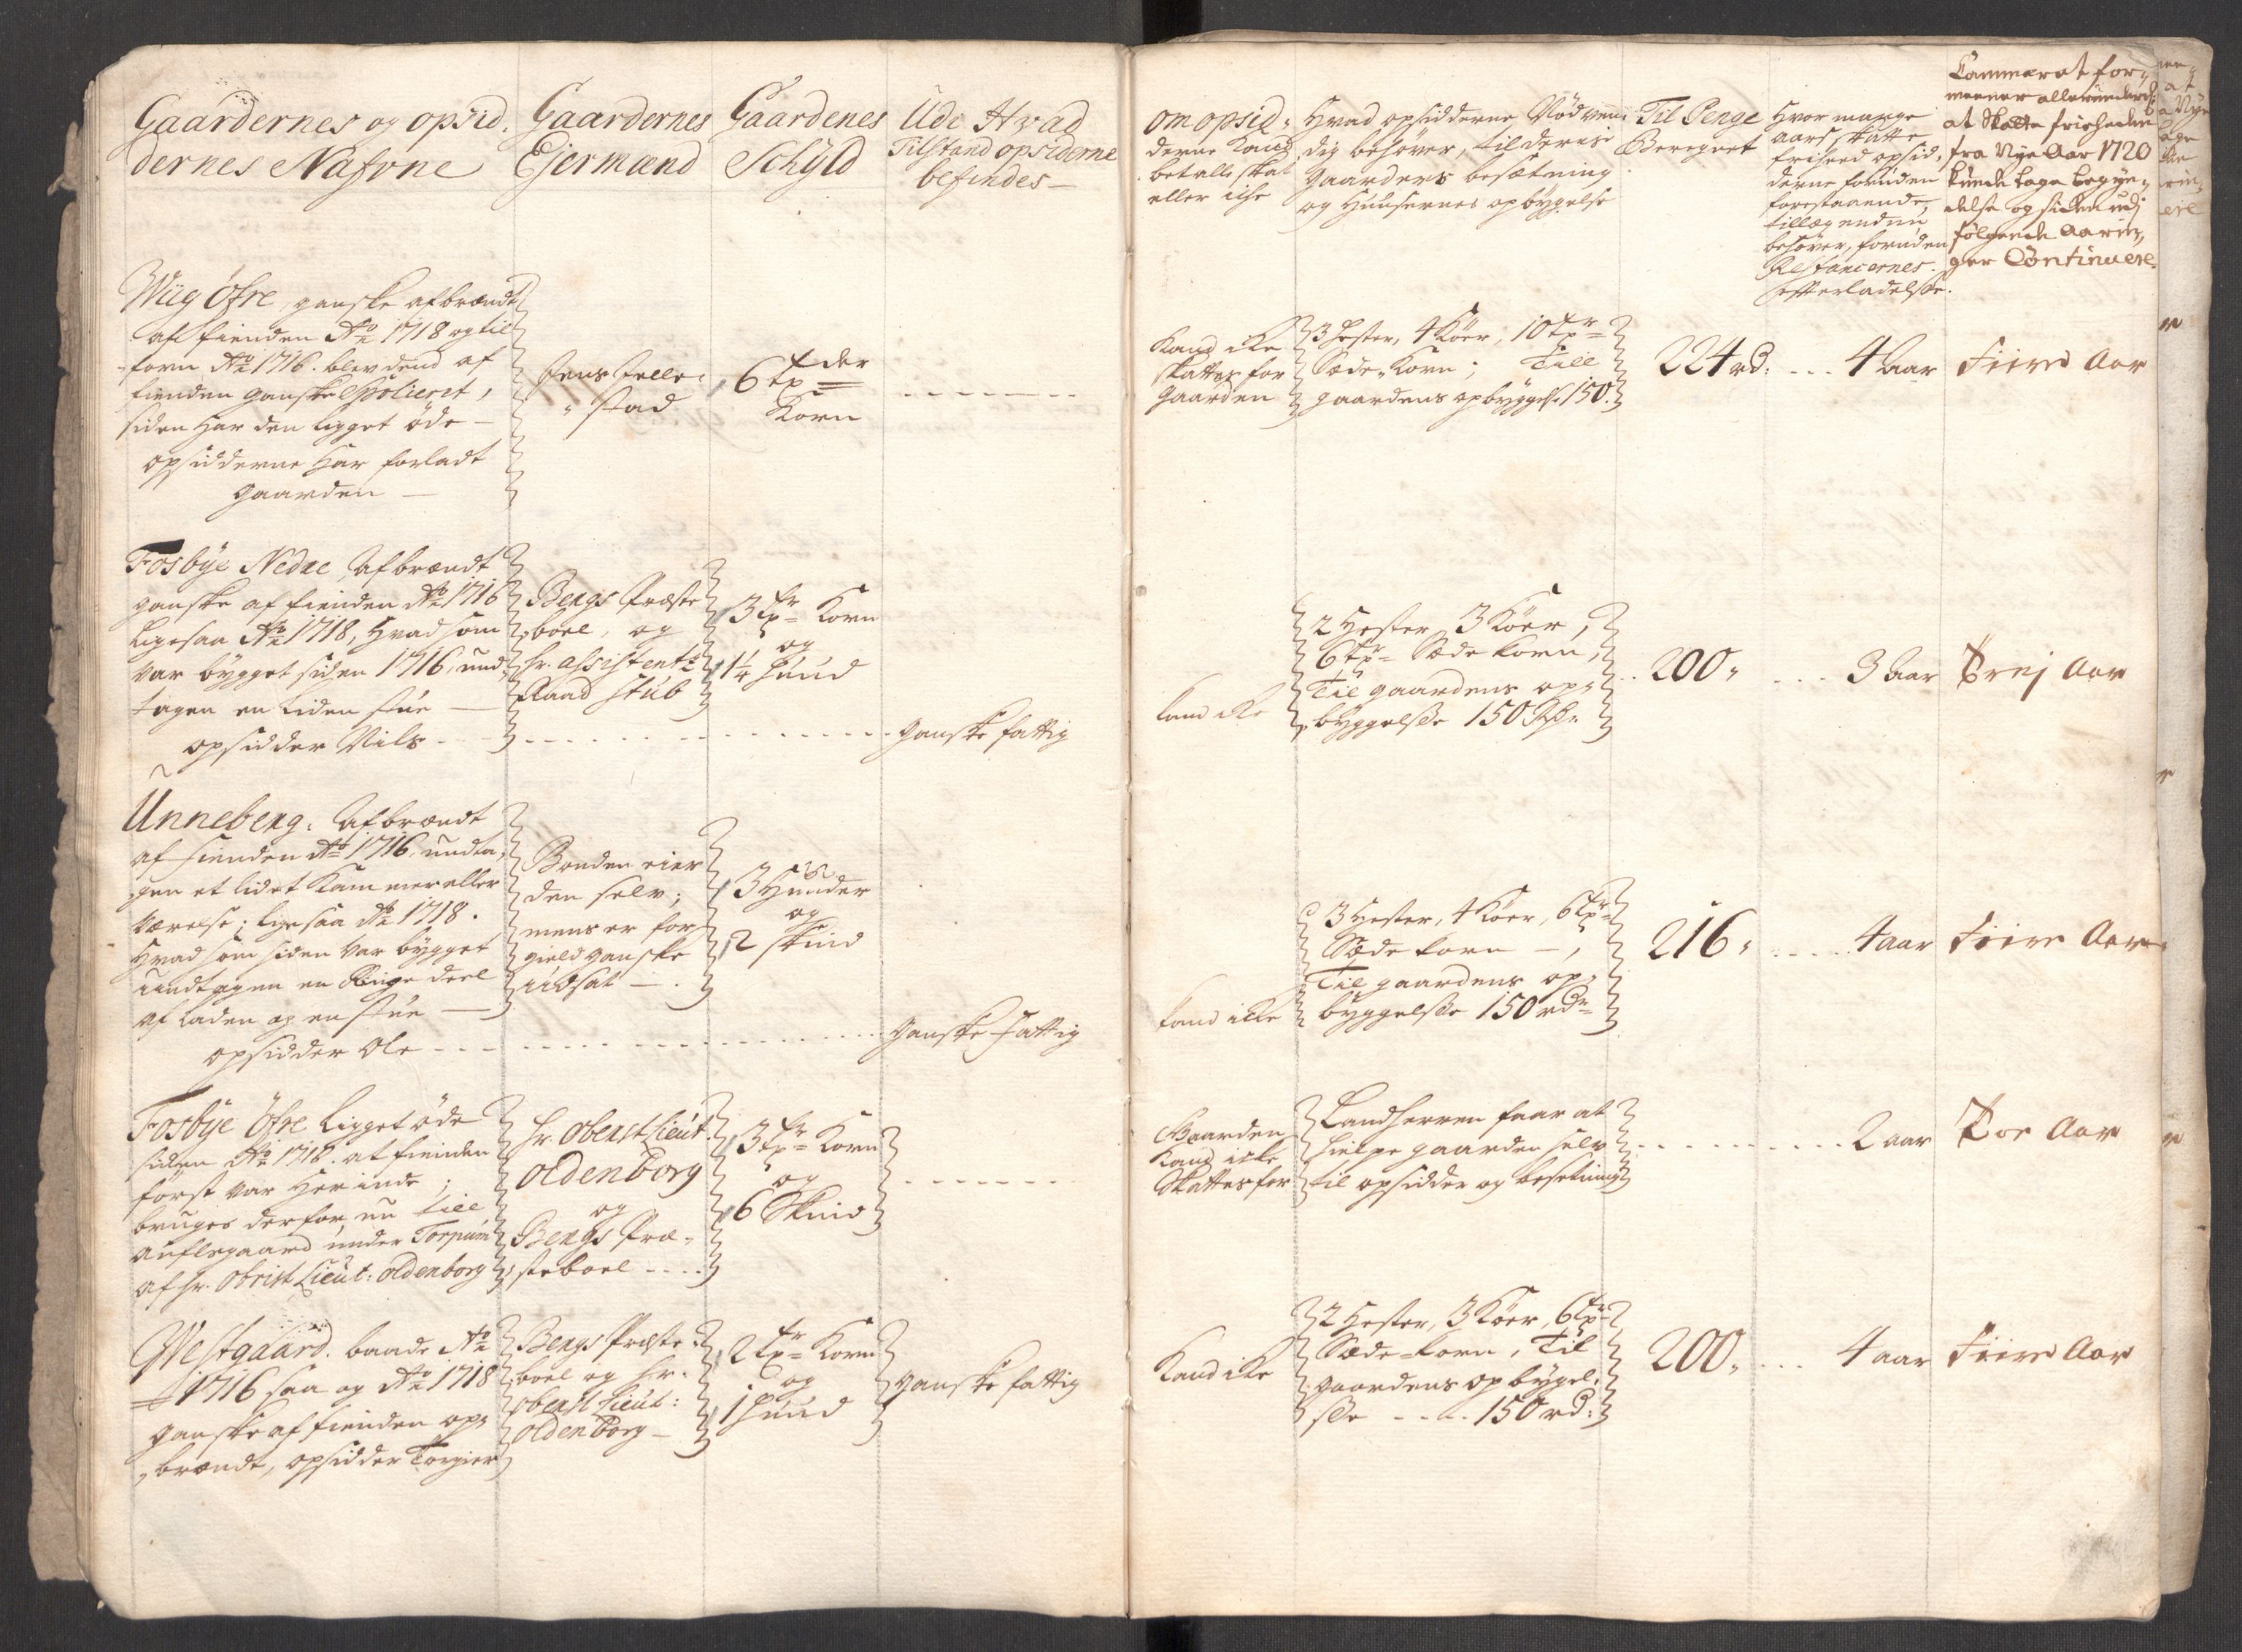 Gaardernes og opsid,
dernes Nafvne
Gaardernes
Ejermænd
Gaardenes
Schÿld
Udi Hvad
Tilstand opsiderne
befindes
om opsid,
derne kand
betalle skat
eller iche
Hvad opsidderne Nødven,
dig behøver, til derris
gaarders besætning
og Huusernes opbygelse
Til Penge
Beregnet
Hvor mange
aars skatte
friheed opsid,
derne foruden
forestaaende,
tillægendin
behøver, foruden
Restancernes
efterladelsse.
Cammerat for,
meener allerunderd:
at Skatte friheden
fra Nye Aar 1720
kunde tage begyn,
delse og siden udi
følgende Aarin,
ger Continuere.
Wüg Öfre, ganske afbrændt
aff fienden Ao 1718 og til
forn Ao 1716. blev dend af
fienden ganske Spolieret,
siden har den ligget øde
opsidderne har forladt
gaarden
Jens Jelle,
stad
6 tp
Korn
Kand iche
skattes for
Gaarden
3 Hester, 4 Kiør, 10 tpr
Sæde Korn; Till
gaardens opbyggelse 150.
224 rd: ... 4 Aar
Fiire Aar
Fosbÿe Nedre, Afbrændt
ganske af fienden Ao 1716
ligesaa Ao 1718, Hvad som
var bygget siden 1716, und,
tagen en liden stue
opsidder Nils
Bergs Præste
boel, og
hr. assistentz
Raad Stub
3 tpr Korn
og
1 1/4 Huud
ganske fattig
kand icke
2 Hester 3 Kiøer,
6 tpr Sæde korn,
Til gaardens op,
byggelsse 150 Rdr
200, ... 3 Aar
Trej Aar
Unneberg. Afbrændt
af fienden Ao 1716, undta,
gen et lidet Kammer eller
værelse; ligesaa Ao 1718.
Hvad som siden var bygget
undtagen en Ringe deel
af laden og en stue
opsidder Ole
Bonden eier
den selv;
mens er for
gield ganske
udsat
3 Huuder
og
2 skind
ganske fattig
kand icke
3 Hester, 4 Kiøer, 6 tpr
Sæde korn,
Til gaardens op,
byggelsse 150 rdr
216, ... 4 aar
Fiire Aar
Fosbÿe Öfre ligget øde
siden Ao 1716. at fienden
først var Her inde;
bruges derfor nu till
auflsgaard under Torpum
af hr. Obrist Lieut: oldenborg
hr. Oberst Lieut:
oldenborg
og
Bergs Præ,
steboel
3 tpr Korn
og
6 Skind
Gaarden
Kand icke
Skattes for
Landherren faar at
hielpe gaarden selv
til opsidder og besetning
2 aar
Toe Aar
Westgaard. baade Ao
1716 saa og Ao 1718
ganske af fienden op,
brændt, opsidder Torgier
Bergs Præste
boel og hr.
Oberst Lieut:
oldenborg
2 tpr Korn
og
1 Huud
ganske fattig
Kand icke
2 Hester, 3 Kiøer, 6 tpr
Sæde-korn, Til
gaardens opbygel,
sse .... 150 rd:
200, ... 4 aar
Fiire Aar